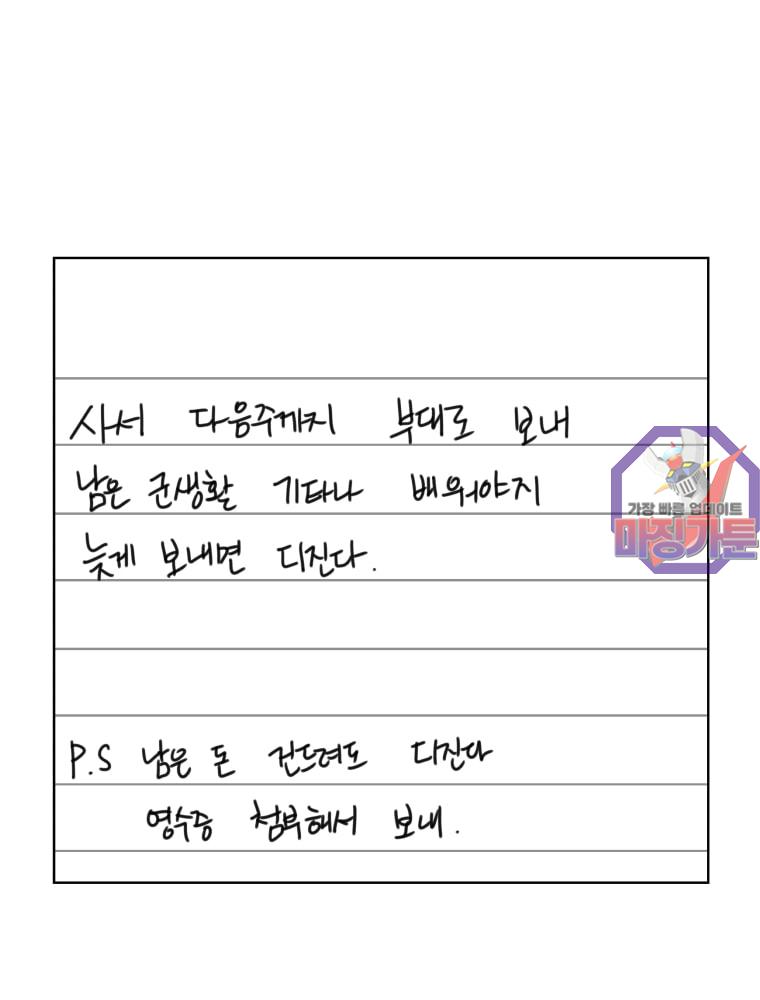 사서 다음주까지 부대로 보내
남은 군생활 기타나 배워야지
늦게 보내면 디진다.
P.S 남은 돈 건드려도 디진다
영수증 첨부해서 보내.
가장 빠른 업데이트
마징가툰